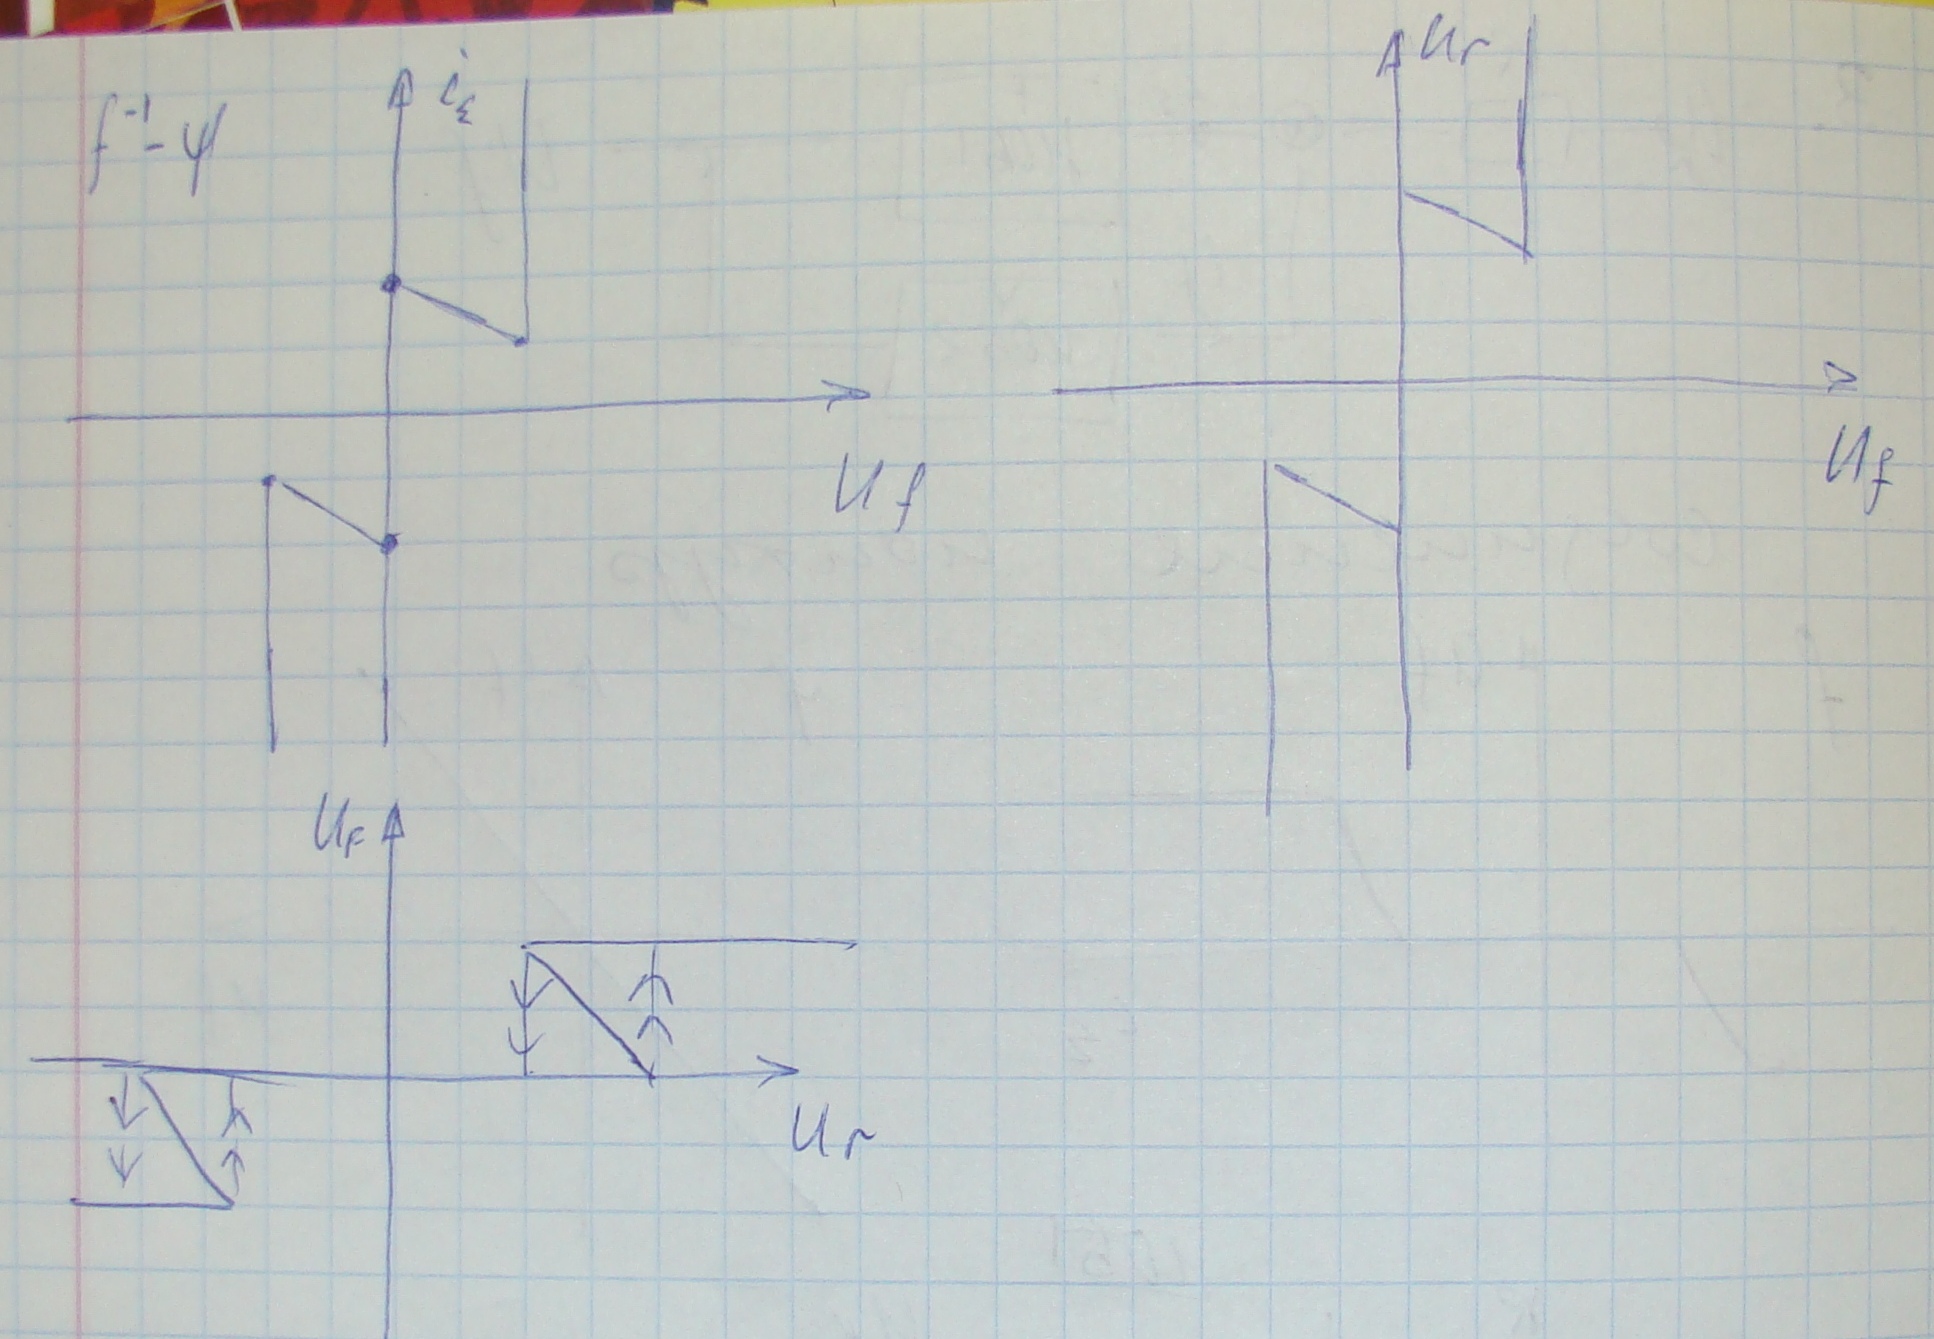 f⁻¹-ψ
i_ε
U_f
U_r
U_f
U_F
U_r